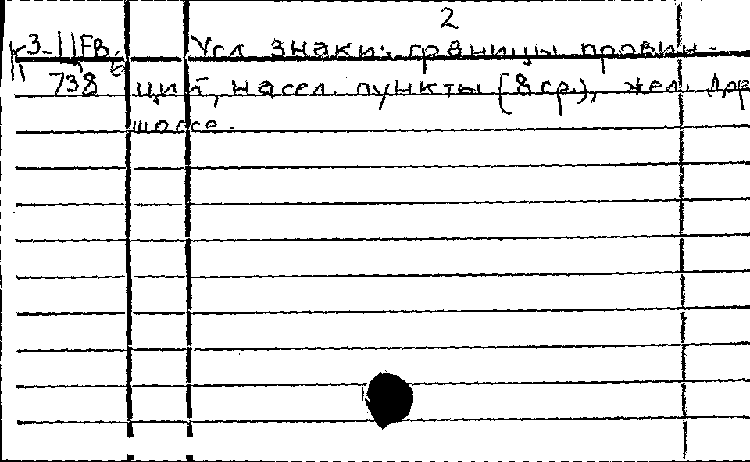 2
К3-11FB, Усл знаки: границы провин-
738 ций, насел. пункты (8 гр.), жел. дор
шоссе.